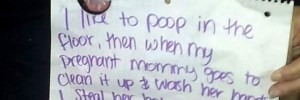 I like to poop in the
floor, then when my
pregnant mommy goes to
clean it up & wash her hands
I steal her